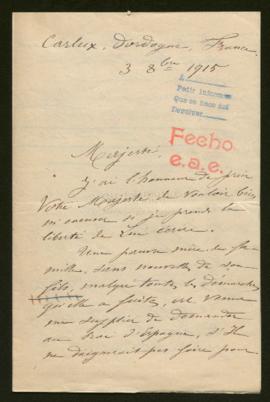 Carlux, Dordogne, France,
3 8bre 1915
A
Pedir informes
Que se hace así
Devolver
Fecho
e.a.e.
Majesté
J'ai l'honneur de prier
Votre Majesté de vouloir bien
m'excuser si je prends la
liberté de Lui écrire.
Une pauvre mère de fa-
mille, sans nouvelles de son
fils, malgré toutes les démarches
qu'elle a faites, est venue
me supplier de demander
au Roi d'Espagne, s'Il
ne daignerait pas faire pour